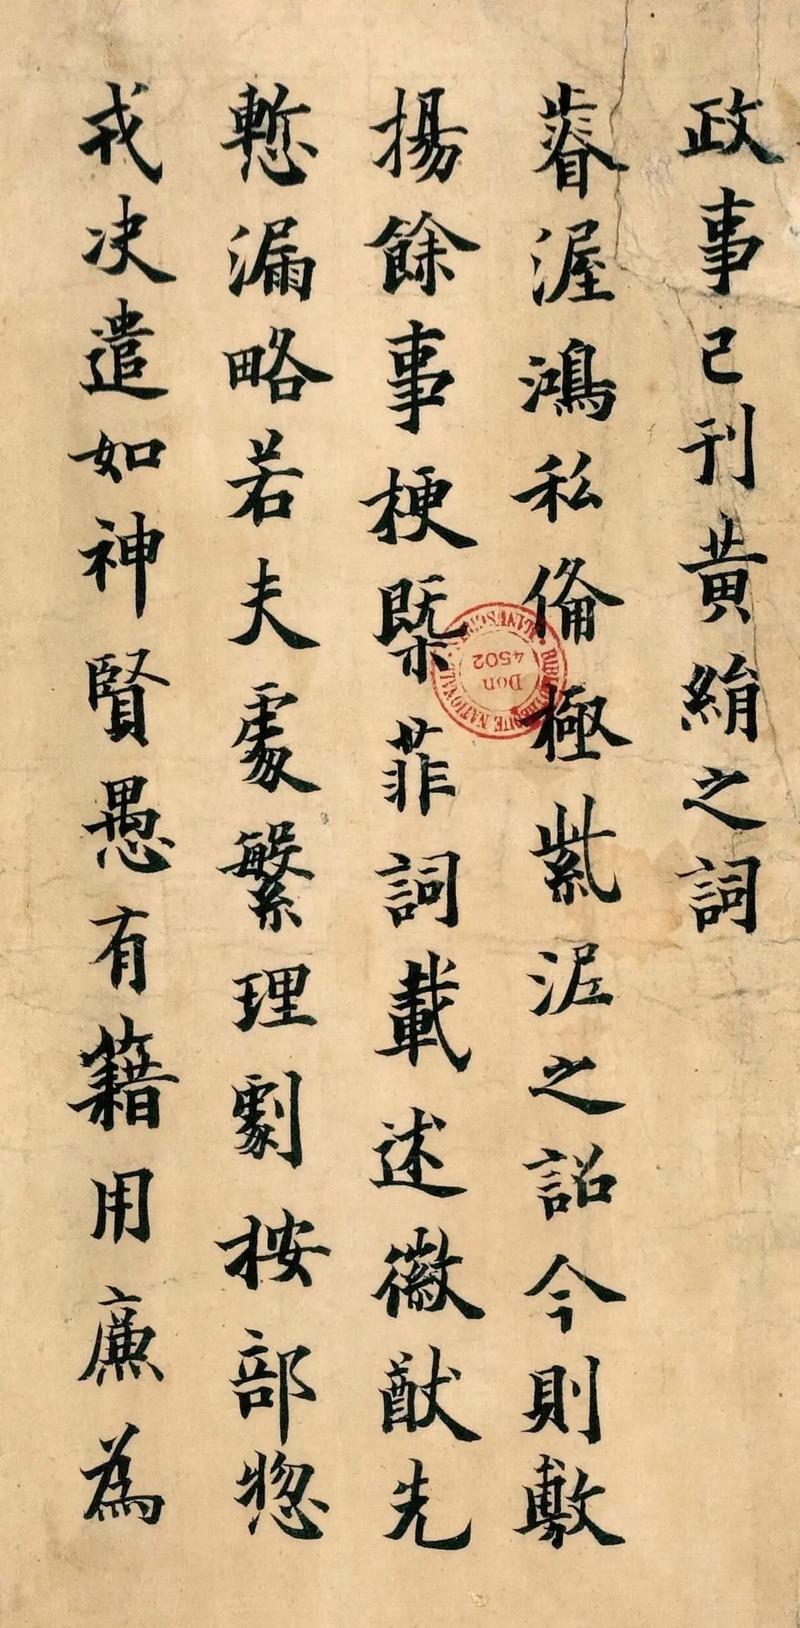 政事已刊黃絹之詞
睿渥鴻私俻極紫渥之詔今則敷
揚餘事梗槩菲詞載述徽猷先
慙漏略若夫處繁理劇按部惣
戎决遣如神賢愚有籍用廉為
BIBLIOTHEQUE NATIONALE MANUSCRITS
Don
4502